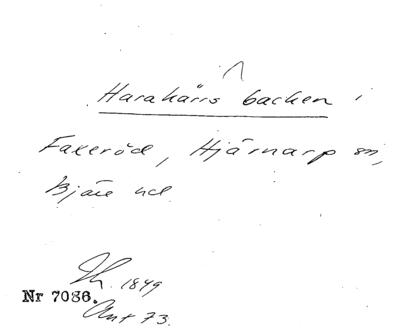 Harakärrs backen i
Faxeröd, Hjärnarp sn,
Bjäre hd
1849
Nr 7086.
Ant 73.